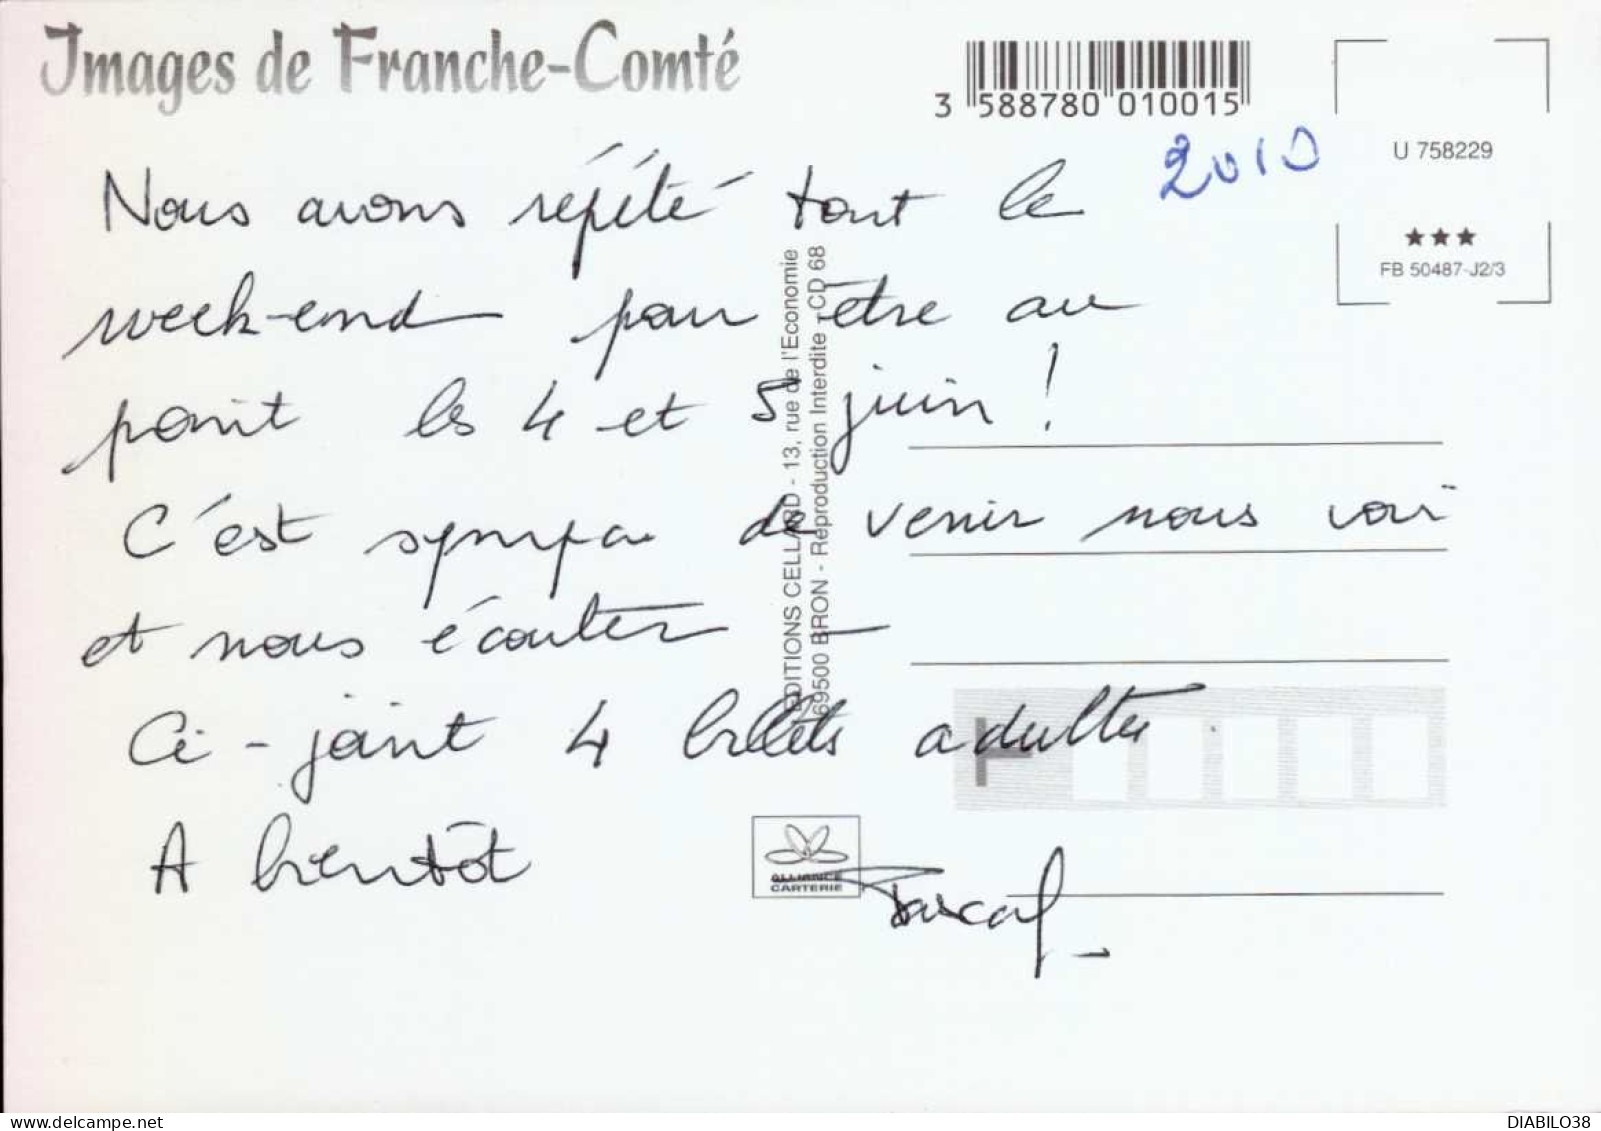 Images de Franche-Comté
3 588780 010015
2010
U 758229
★★★
FB 50487-J2/3
Nous avons répété tout le
week-end pour être au
point les 4 et 5 juin !
C'est sympa de venir nous voir
et nous écouter -
Ci-joint 4 billets adultes.
A bientôt
Pascal.
EDITIONS CELLARD - 13, rue de l'Economie
69500 BRON - Reproduction Interdite - CD 68
ALLIANCE
CARTERIE
delcampe.net
DIABILO38